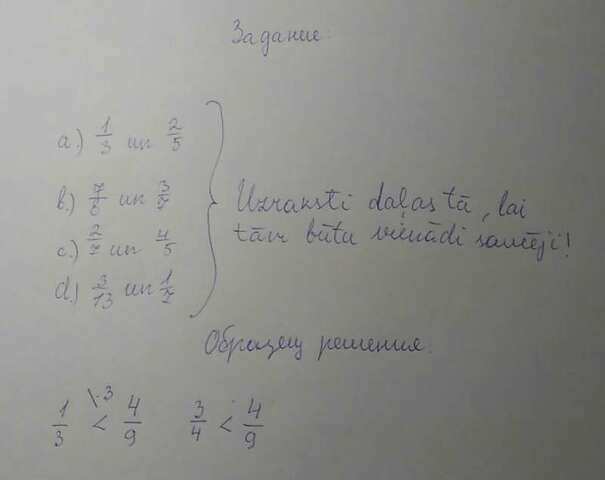 Задание:
a.) 1/3 un 2/5
b.) 7/8 un 3/7
c.) 2/7 un 4/5
d.) 3/13 un 1/2
Uzraksti daļas tā, lai
tām būtu vienādi saucēji!
Образец решения:
1/3 \·3 < 4/9 3/4 < 4/9